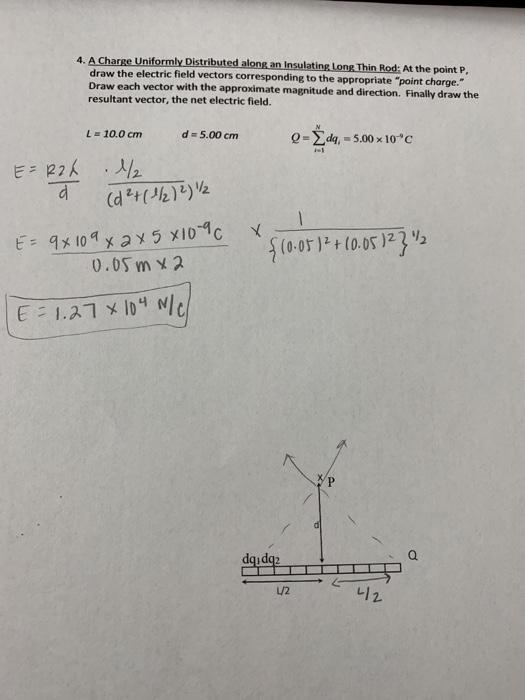 4. A Charge Uniformly Distributed along an Insulating Long Thin Rod: At the point P,
draw the electric field vectors corresponding to the appropriate "point charge."
Draw each vector with the approximate magnitude and direction. Finally draw the
resultant vector, the net electric field.
L = 10.0 cm d = 5.00 cm Q = Σ dqᵢ = 5.00 × 10⁻⁹ C
N
i=1
E = k2λ/d · l/2 / (d²+(l/2)²)^1/2
E = 9×10⁹ × 2×5 ×10⁻⁹C / 0.05m × 2 × 1 / {(0.05)²+(0.05)²}^1/2
E = 1.27 × 10⁴ N/C
P
d
dq₁dq₂ Q
L/2 L/2